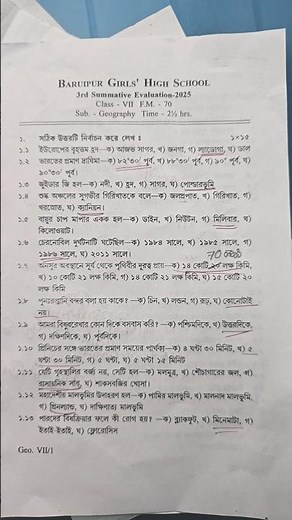 BARUIPUR GIRLS' HIGH SCHOOL
3rd Summative Evaluation-2025
Class - VII F.M. - 70
Sub. - Geography Time - 2½ hrs.
১. সঠিক উত্তরটি নির্বাচন করে লেখ ঃ ১×১৫
১.১ ইউরোপের বৃহত্তম হ্রদ—ক) আজভ সাগর, খ) জলগা, গ) ল্যাডোগা, ঘ) ডাল
১.২ ভারতের প্রমাণ দ্রাঘিমা—ক) ৮২°৩০' পূর্ব, খ) ৮৮°৩০' পূর্ব, গ) ৯০° পূর্ব, ঘ)
৯০°৩০' পূর্ব।
১.৩ জুইডার জি হল—ক) নদী, খ) হ্রদ, গ) সাগর, ঘ) পোল্ডারভূমি
১.৪ শুষ্ক অঞ্চলের সুগভীর গিরিখাতকে বলে—ক) জলপ্রপাত, খ) গিরিখাত, গ)
খরস্রোত, ঘ) ক্যানিয়ন।
১.৫ বায়ুর চাপ মাপার একক হল—ক) ডাইন, খ) নিউটন, গ) মিলিবার, ঘ)
কিলোওয়াট।
১.৬ চেরনোবিল দুর্ঘটনাটি ঘটেছিল—ক) ১৯৮৪ সালে, খ) ১৯৮৫ সালে, গ)
১৯৮৬ সালে, ঘ) ২০১১ সালে।
১.৭ অনসুর অবস্থানে সূর্য থেকে পৃথিবীর দূরত্ব প্রায়—ক) ১৪ কোটি ২০ লক্ষ কিমি,
খ) ১০ কোটি ২১ লক্ষ কিমি, গ) ১৪ কোটি ২১ লক্ষ কিমি, ঘ) ১৫ কোটি ২০
লক্ষ কিমি
১.৮ পুনঃরপ্তানি বন্দর বলা হয় কাকে? —ক) চিন, খ) লন্ডন, গ) রূঢ়, ঘ) কোনোটাই
নয়।
১.৯ আমরা বিষুবরেখার কোন দিকে বসবাস করি? —ক) পশ্চিমদিকে, খ) উত্তরদিকে,
গ) দক্ষিণদিকে, ঘ) পূর্বদিকে।
১.১০ গ্রিনিচের সঙ্গে ভারতের প্রমাণ সময়ের পার্থক্য—ক) ৪ ঘণ্টা ৩০ মিনিট, খ) ৫
ঘণ্টা ৩০ মিনিট, গ) ৫ ঘণ্টা, ঘ) ৫ ঘণ্টা ১৫ মিনিট
১.১১ যেটি গৃহস্থালির বর্জ্য নয়, সেটি হল—ক) মলমূত্র, খ) শৌচাগারের জল, গ)
রাসায়নিক সার, ঘ) শাকসবজির খোসা।
১.১২ মহাদেশীয় মালভূমির উদাহরণ হল—ক) পামির মালভূমি, খ) মালনাদ মালভূমি,
গ) গ্রিনল্যান্ড, ঘ) দাক্ষিণাত্য মালভূমি
১.১৩ পারদের বিষক্রিয়ার ফলে কী রোগ হয়? —ক) ব্ল্যাকফুট, খ) মিনামাটা, গ)
ইতাই-ইতাই, ঘ) ফ্লোরোসিস
Geo. VII/1